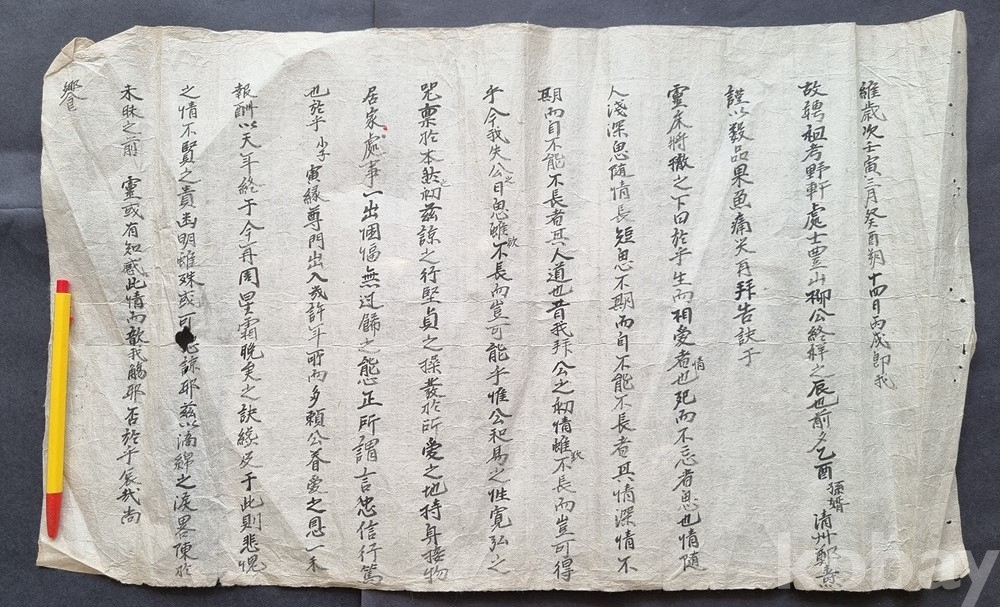 維歲次壬寅三月癸酉朔十四日丙戌卽我
故聘祖考野軒處士豊山柳公終祥之辰也前夕乙酉孫婿淸州鄭
謹以殽品果魚痛哭再拜告訣于
靈床將撤之下曰於乎生而相愛者情也死而不忘者思也情隨
人淺深思隨情長短思不期而自不能不長者其情深情不
期而自不能不長者其人道也昔我拜公之初情雖欲不長而豈可得
乎今我失公之日思雖欲不長而豈可能乎惟公和易之性寬弘之
兕稟於本然初玆諒之行堅貞之操發於所愛之地持身接物
居家處事一出悃愊無過歸之態正所謂言忠信行篤
也於乎小子寅緣尊門出入幾許年所而多賴公眷愛之恩一未
報酬以天年終于今再周星霜晩矣之訣緣史于此則悲愧
之情不賢之貴幽明雖殊或可諒耶玆以滴綿之淚畧陳於
未昧之前 靈或有知感此情而歆我觴耶否於乎哀哉尙
饗
kobay